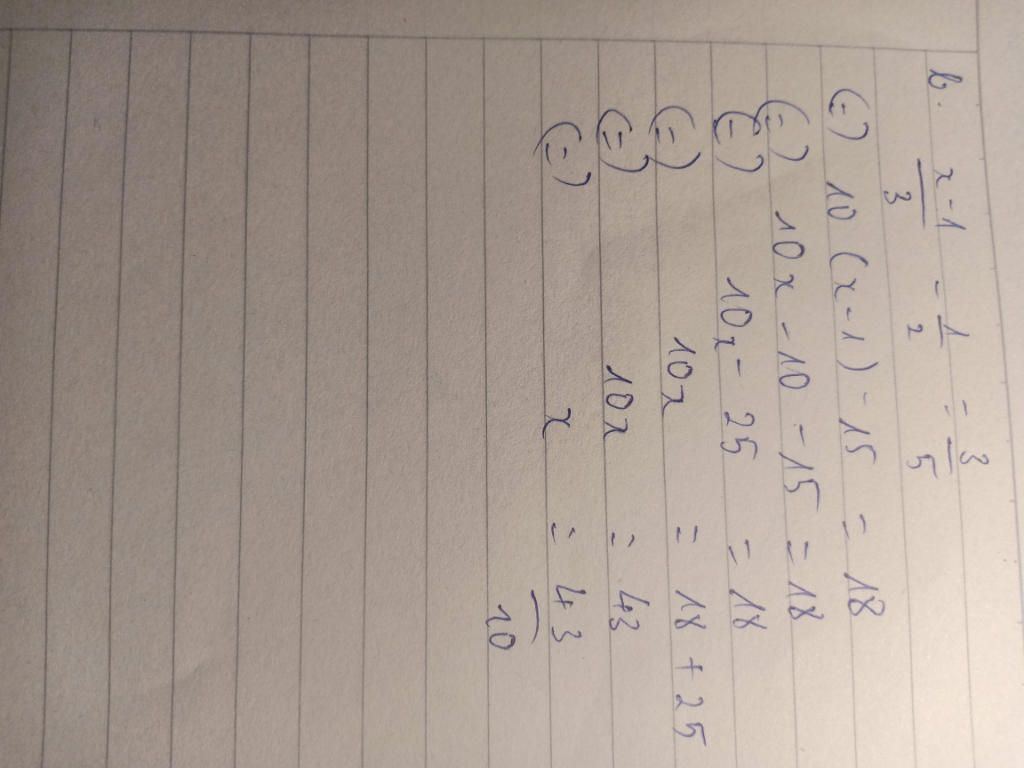 b. x-1/3 - 1/2 = 3/5
(=) 10 (x-1) - 15 = 18
(=) 10x - 10 - 15 = 18
(=) 10x - 25 = 18
(=) 10x = 18 + 25
(=) 10x = 43
(=) x = 43/10